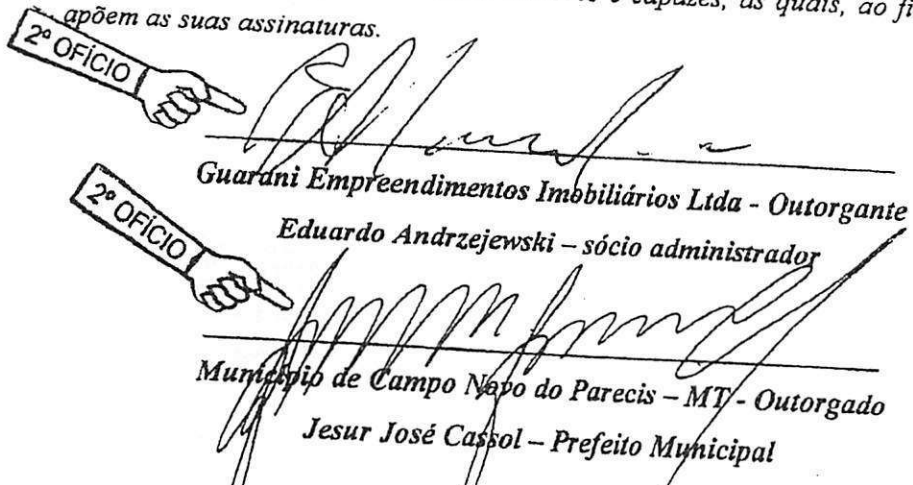 capazes, as quais, ao
apõem as suas assinaturas.
2º OFÍCIO
Guarani Empreendimentos Imobiliários Ltda - Outorgante
Eduardo Andrzejewski – sócio administrador
2º OFÍCIO
Município de Campo Novo do Parecis – MT - Outorgado
Jesur José Cassol – Prefeito Municipal